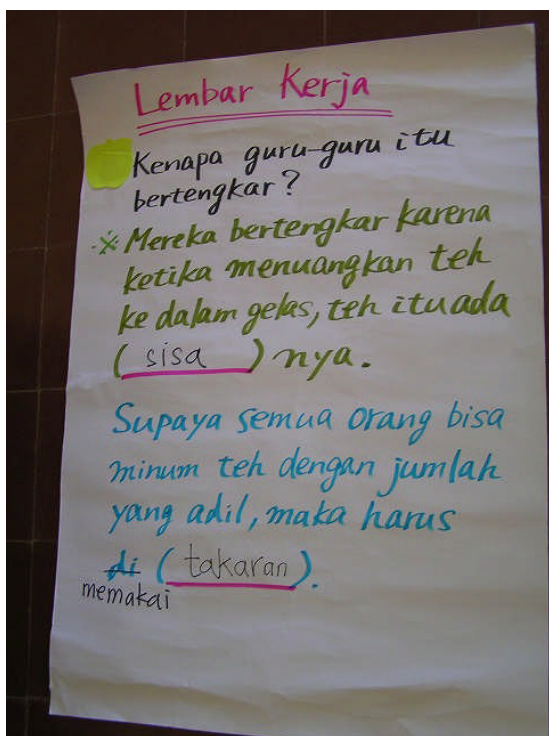 Lembar Kerja
Kenapa guru-guru itu
bertengkar?
※ Mereka bertengkar karena
ketika menuangkan teh
ke dalam gelas, teh itu ada
( sisa ) nya.
Supaya semua orang bisa
minum teh dengan jumlah
yang adil, maka harus
di ( takaran ).
memakai